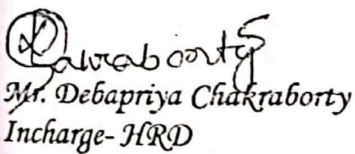 Mr. Debapriya Chakraborty
Incharge- HRD